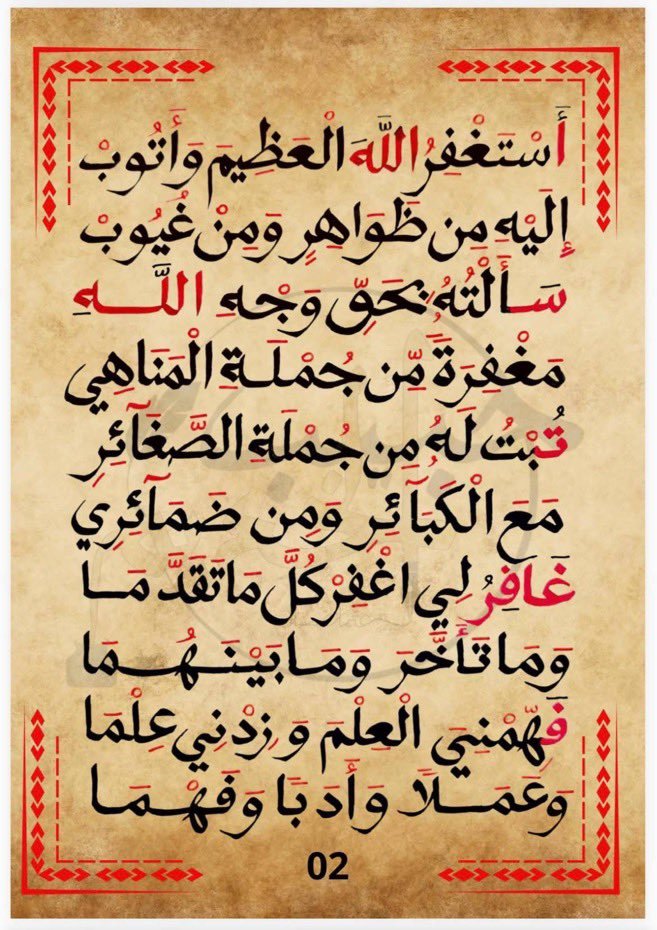 أَسْتَغْفِرُ اللَّهَ الْعَظِيمَ وَأَتُوبْ
إِلَيْهِ مِن ظَوَاهِرٍ وَمِنْ غُيُوبْ
سَأَلْتُهُ بِحَقِّ وَجْهِ اللَّـهِ
مَغْفِرَةً مِّن جُمْلَـةِ الْمَنَاهِي
تُبْتُ لَهُ مِن جُمْلَةِ الصَّغَآئِرِ
مَعَ الْكَبَآئِرِ وَمِن ضَمَآئِرِي
غَافِرُ لِي اغْفِرْ كُلَّ مَا تَقَدَّمَـا
وَمَا تَأَخَّرَ وَمَـا بَيْنَـهُـمَا
فَهِّمْنِيَ الْعِلْمَ وَزِدْنِي عِلْمَا
وَعَمَـلًا وَأَدَبًا وَفَهْـمَـا
02